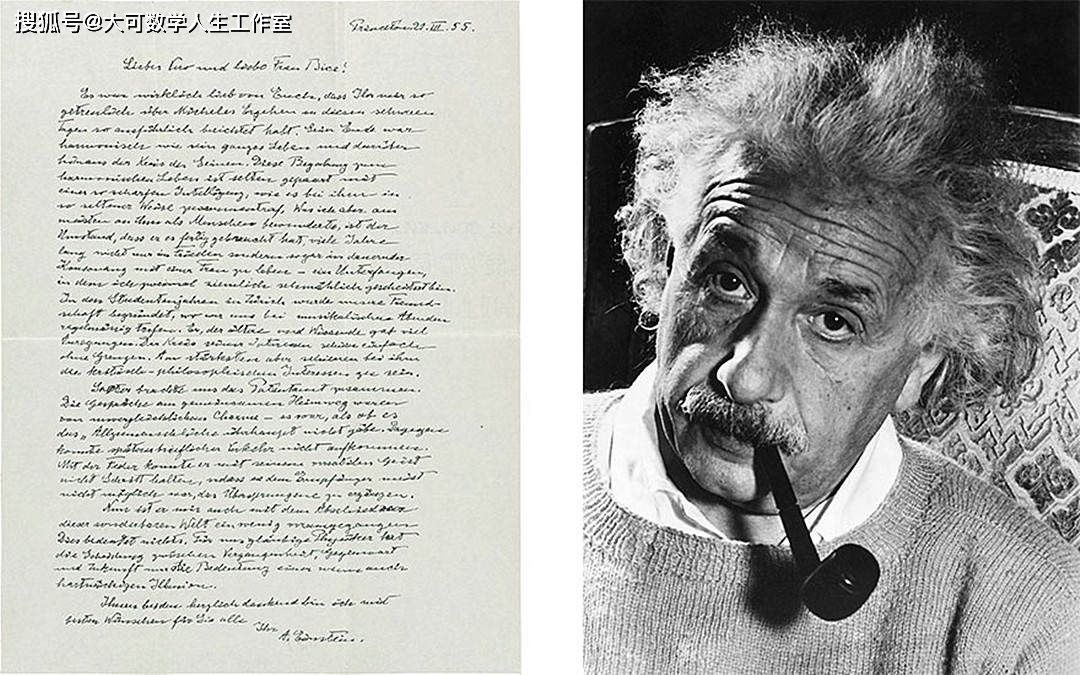 搜狐号@大可数学人生工作室
Princeton 21. III. 55.
Lieber Vero und liebe Frau Bice!
Es war wirklich lieb von Euch, dass Ihr mir so
getreulich über Micheles Ergehen in diesen schweren
Tagen so ausführlich berichtet habt. Sein Ende war
harmonisch wie sein ganzes Leben und darüber
hinaus der Kreis der Seinen. Diese Begabung zum
harmonischen Leben ist selten gepaart mit
einer so scharfen Intelligenz, wie es bei ihm in
so seltener Weise zusammentraf. Was ich aber am
meisten an ihm als Menschen bewunderte, ist der
Umstand, dass er es fertig gebracht hat, viele Jahre
lang nicht nur in Frieden sondern sogar in dauernder
Konsonanz mit einer Frau zu leben – ein Unterfangen,
in dem ich zweimal ziemlich schmählich gescheitert bin.
In den Studentenjahren in Zürich wurde unsere Freund-
schaft begründet, wo wir uns bei musikalischen Abenden
regelmässig trafen. Er, der ältere und Wissende gab viel
Anregungen. Der Kreis seiner Interessen schien einfach
ohne Grenzen. Am stärksten aber schienen bei ihm
die kritisch-philosophischen Interessen zu sein.
Später brachte uns das Patentamt zusammen.
Die Gespräche am gemeinsamen Heimweg waren
von unvergleichlichem Charme – es war, als ob es
das „Allzumenschliche" überhaupt nicht gäbe. Dagegen
konnte später brieflicher Verkehr nicht aufkommen.
Mit der Feder konnte er mit seinem mobilen Geist
nicht Schritt halten, sodass es dem Empfänger meist
nicht möglich war, das Übersprungene zu ergänzen.
Nun ist er mir auch mit dem Abschied von
dieser sonderbaren Welt ein wenig vorausgegangen
Dies bedeutet nichts. Für uns gläubige Physiker hat
die Scheidung zwischen Vergangenheit, Gegenwart
und Zukunft nur die Bedeutung einer wenn auch
hartnäckigen Illusion.
Ihnen beiden herzlich dankend bin ich mit
besten Wünschen für Sie alle
Ihr
A. Einstein.